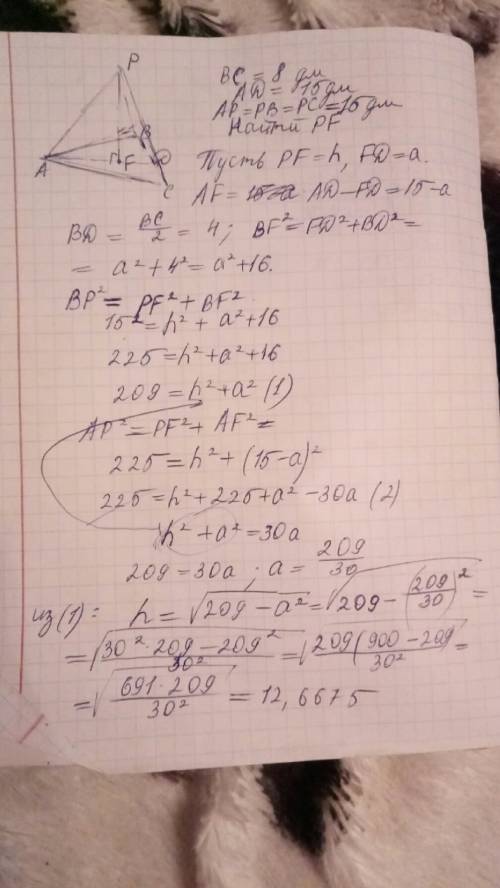 P
B
A
F
D
C
BC = 8 дм
AD = 15 дм
AP = PB = PC = 15 дм
Найти PF
Пусть PF = h, FD = a.
AF = 15-a AD-FD = 15-a
BD = BC/2 = 4; BF² = FD² + BD² =
= a² + 4² = a² + 16.
BP² = PF² + BF²
15² = h² + a² + 16
225 = h² + a² + 16
209 = h² + a² (1)
AP² = PF² + AF² =
225 = h² + (15-a)²
225 = h² + 225 + a² - 30a (2)
h² + a² = 30a
209 = 30a; a = 209/30
из (1): h = √(209 - a²) = √(209 - (209/30)²) =
= √((30²·209 - 209²)/30²) = √(209(900 - 209)/30²) =
= √(691·209/30²) = 12,6675